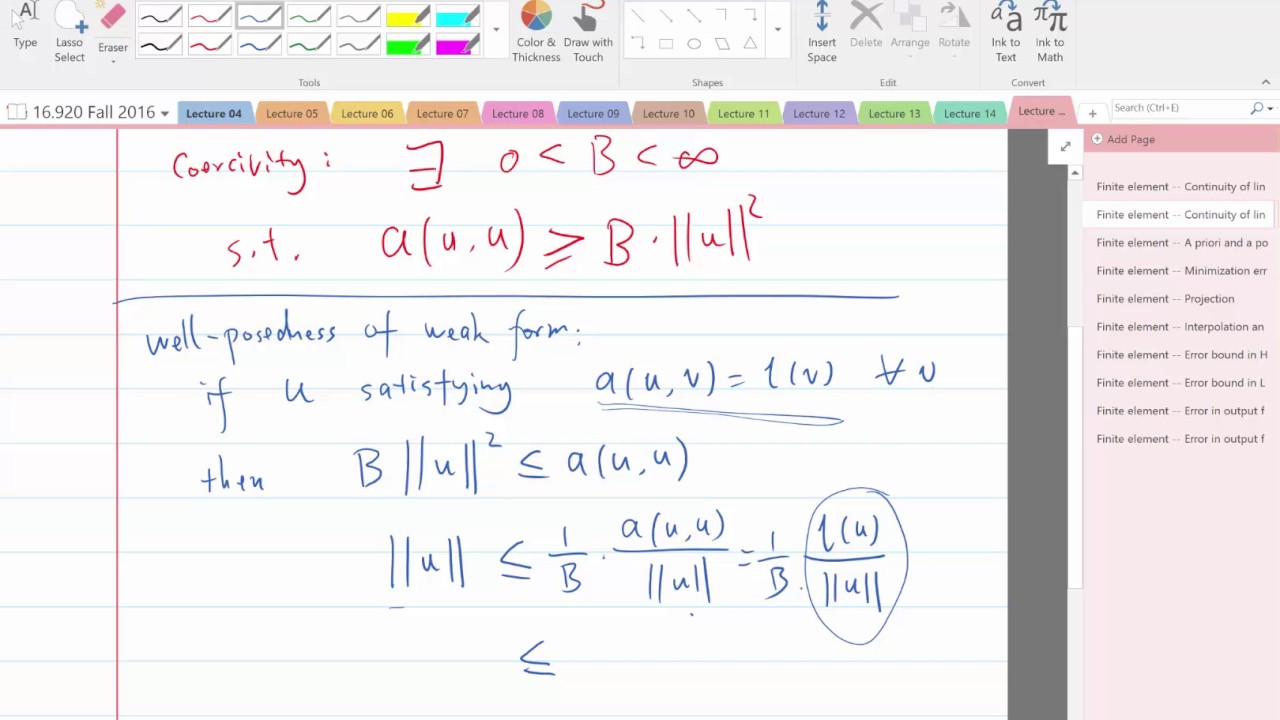 Type
Lasso
Select
Eraser
Color &
Thickness
Draw with
Touch
Insert
Space
Delete
Arrange
Rotate
Ink to
Text
Ink to
Math
Tools
Shapes
Edit
Convert
16.920 Fall 2016
Lecture 04
Lecture 05
Lecture 06
Lecture 07
Lecture 08
Lecture 09
Lecture 10
Lecture 11
Lecture 12
Lecture 13
Lecture 14
Lecture ...
Search (Ctrl+E)
Add Page
Finite element -- Continuity of lin
Finite element -- Continuity of lin
Finite element -- A priori and a po
Finite element -- Minimization err
Finite element -- Projection
Finite element -- Interpolation an
Finite element -- Error bound in H
Finite element -- Error bound in L
Finite element -- Error in output f
Finite element -- Error in output f
Coercivity: ∃ 0 < B < ∞
s.t. a(u,u) ≥ B·||u||²
well-posedness of weak form:
if u satisfying a(u,v) = l(v) ∀ v
then B||u||² ≤ a(u,u)
||u|| ≤ 1/B · a(u,u)/||u|| = 1/B · l(u)/||u||
≤